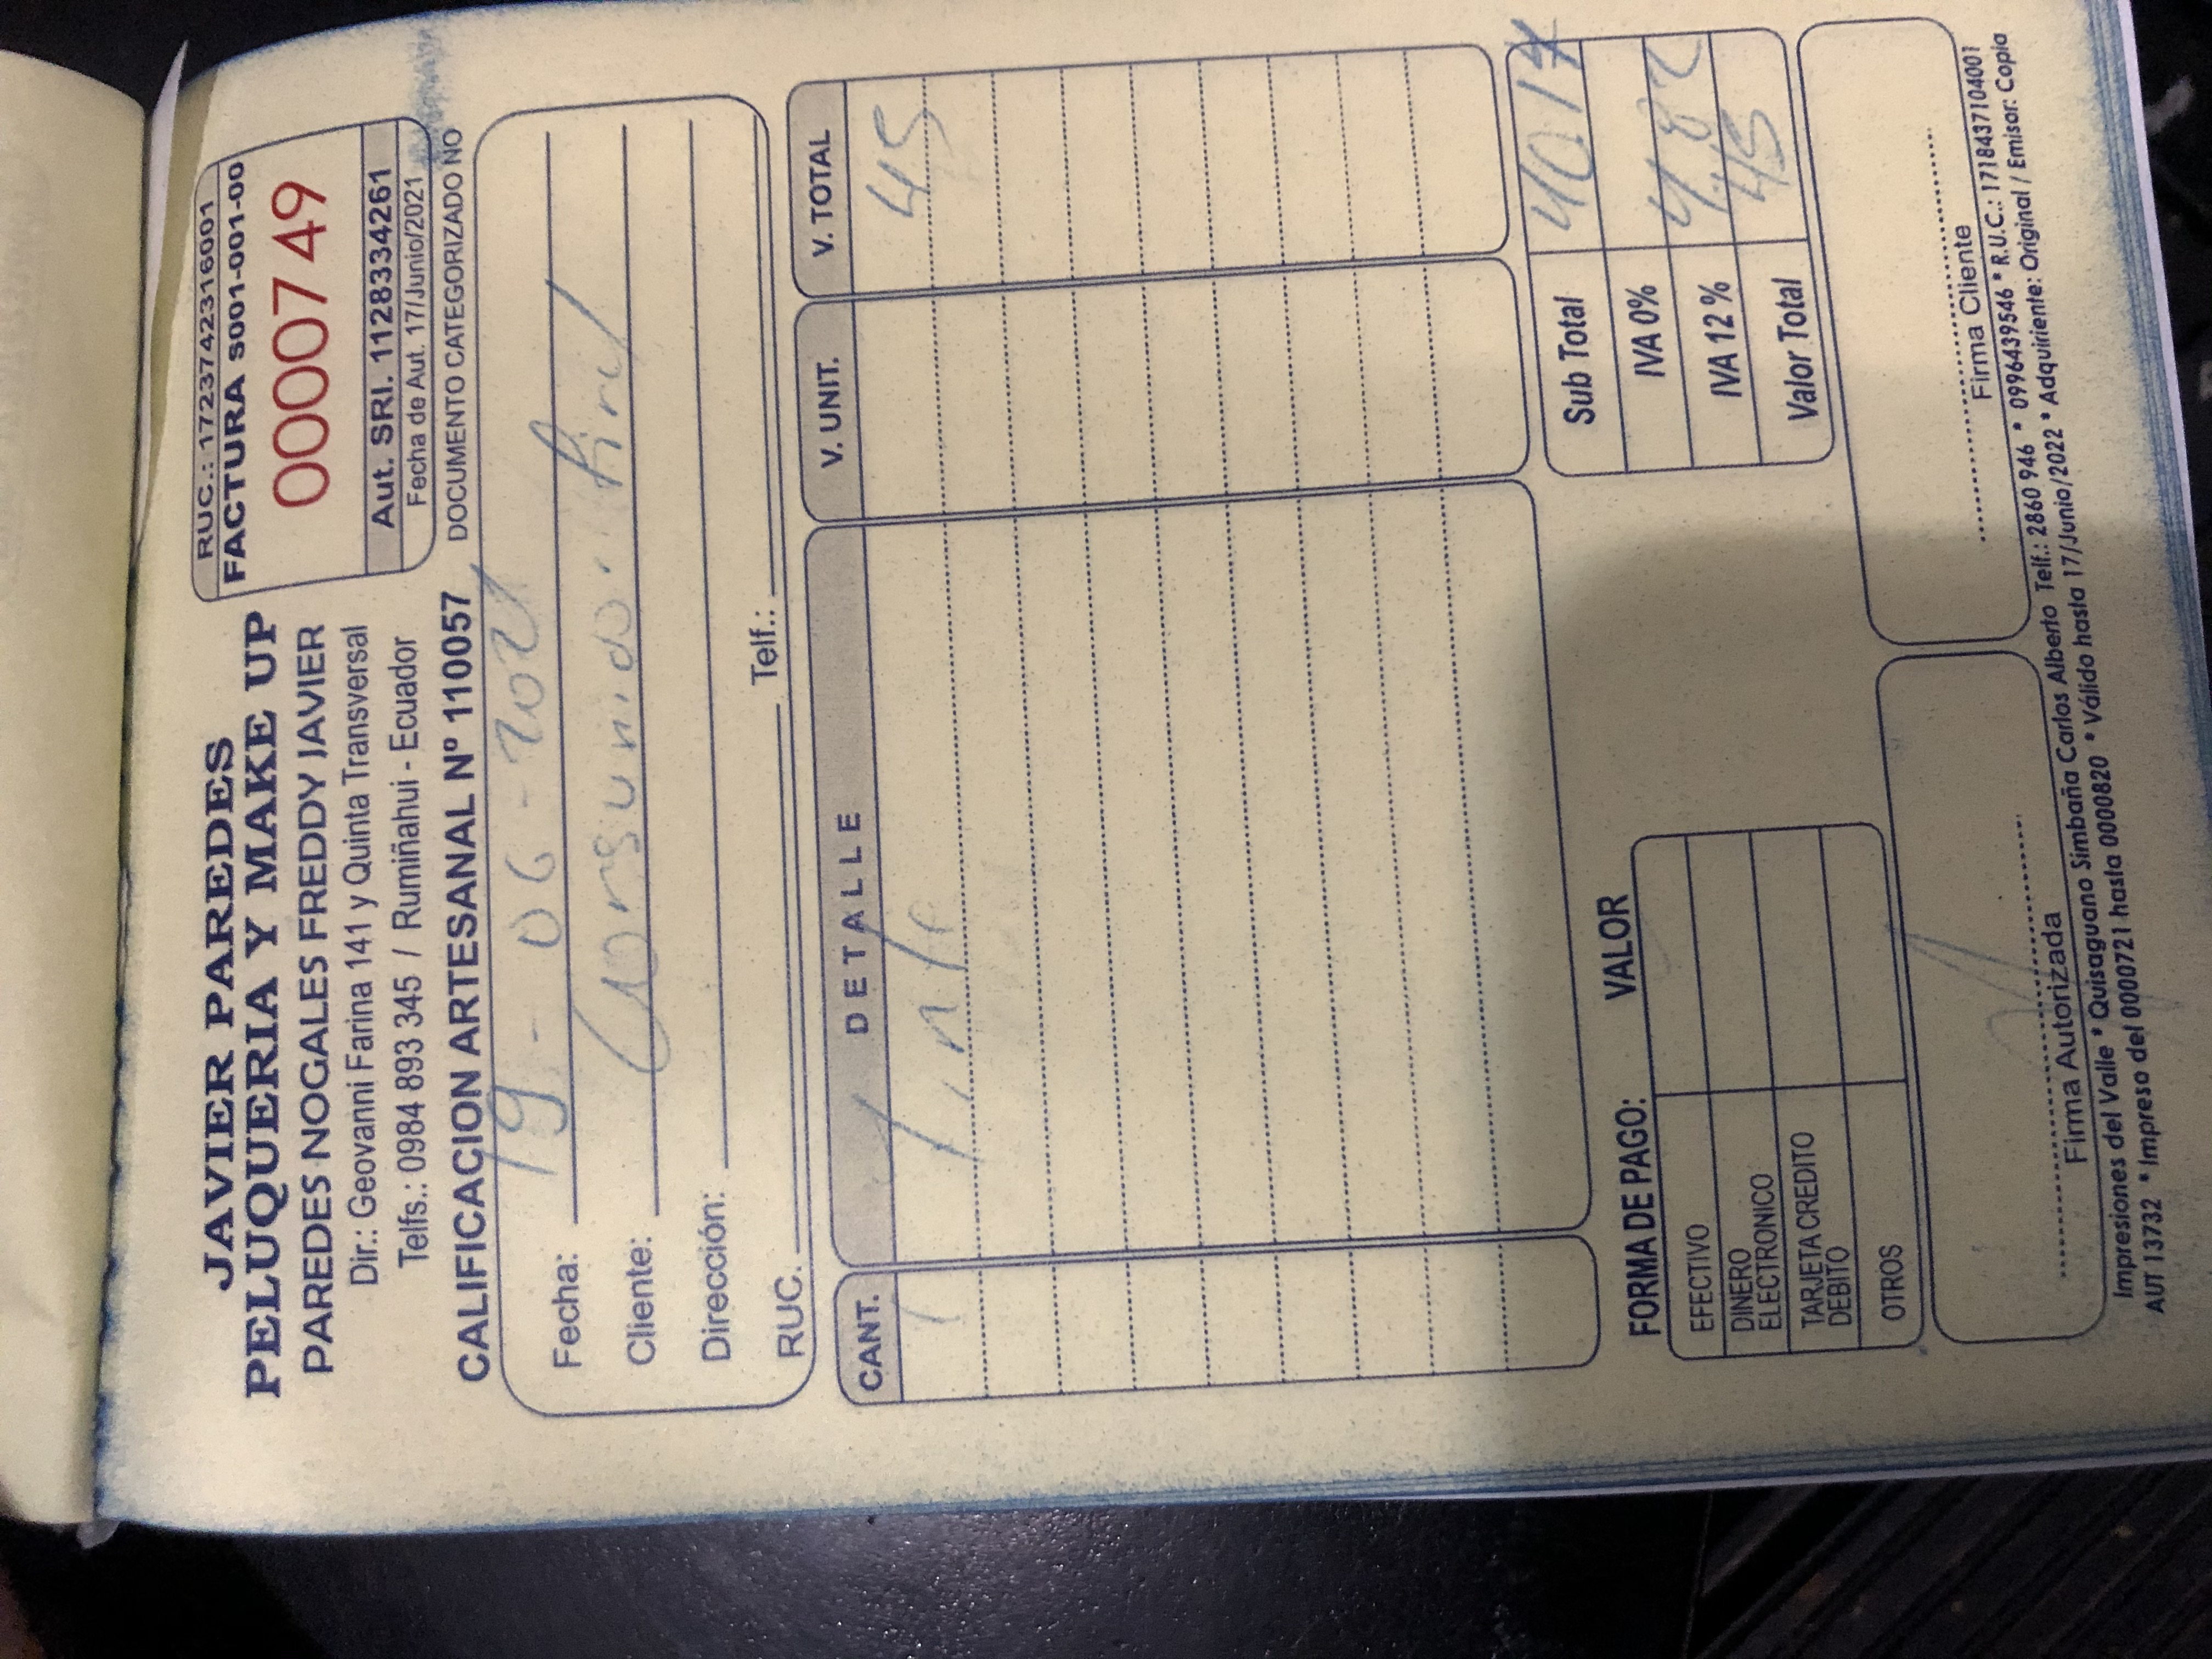 JAVIER PAREDES
PELUQUERIA Y MAKE UP
PAREDES NOGALES FREDDY JAVIER
Dir.: Geovanni Farina 141 y Quinta Transversal
Telfs.: 0984 893 345 / Rumiñahui - Ecuador
CALIFICACION ARTESANAL Nº 110057
RUC.: 1723742316001
FACTURA S001-001-00
0000749
Aut. SRI. 1128334261
Fecha de Aut. 17/Junio/2021
DOCUMENTO CATEGORIZADO NO
Fecha: 19-06-2021
Cliente: Consumidor final
Dirección:
RUC. Telf.:
CANT. DETALLE V. UNIT. V. TOTAL
1 Tinte 45
Sub Total 40.17
IVA 0%
IVA 12% 4.82
Valor Total 45
FORMA DE PAGO: VALOR
EFECTIVO
DINERO
ELECTRONICO
TARJETA CREDITO
DEBITO
OTROS
Firma Autorizada
Firma Cliente
Impresiones del Valle * Quisaguano Simbaña Carlos Alberto Telf.: 2860 946 * 0996439546 * R.U.C.: 1718437104001
AUT 13732 * Impreso del 0000721 hasta 0000820 * Válido hasta 17/Junio/2022 * Adquiriente: Original / Emisor: Copia